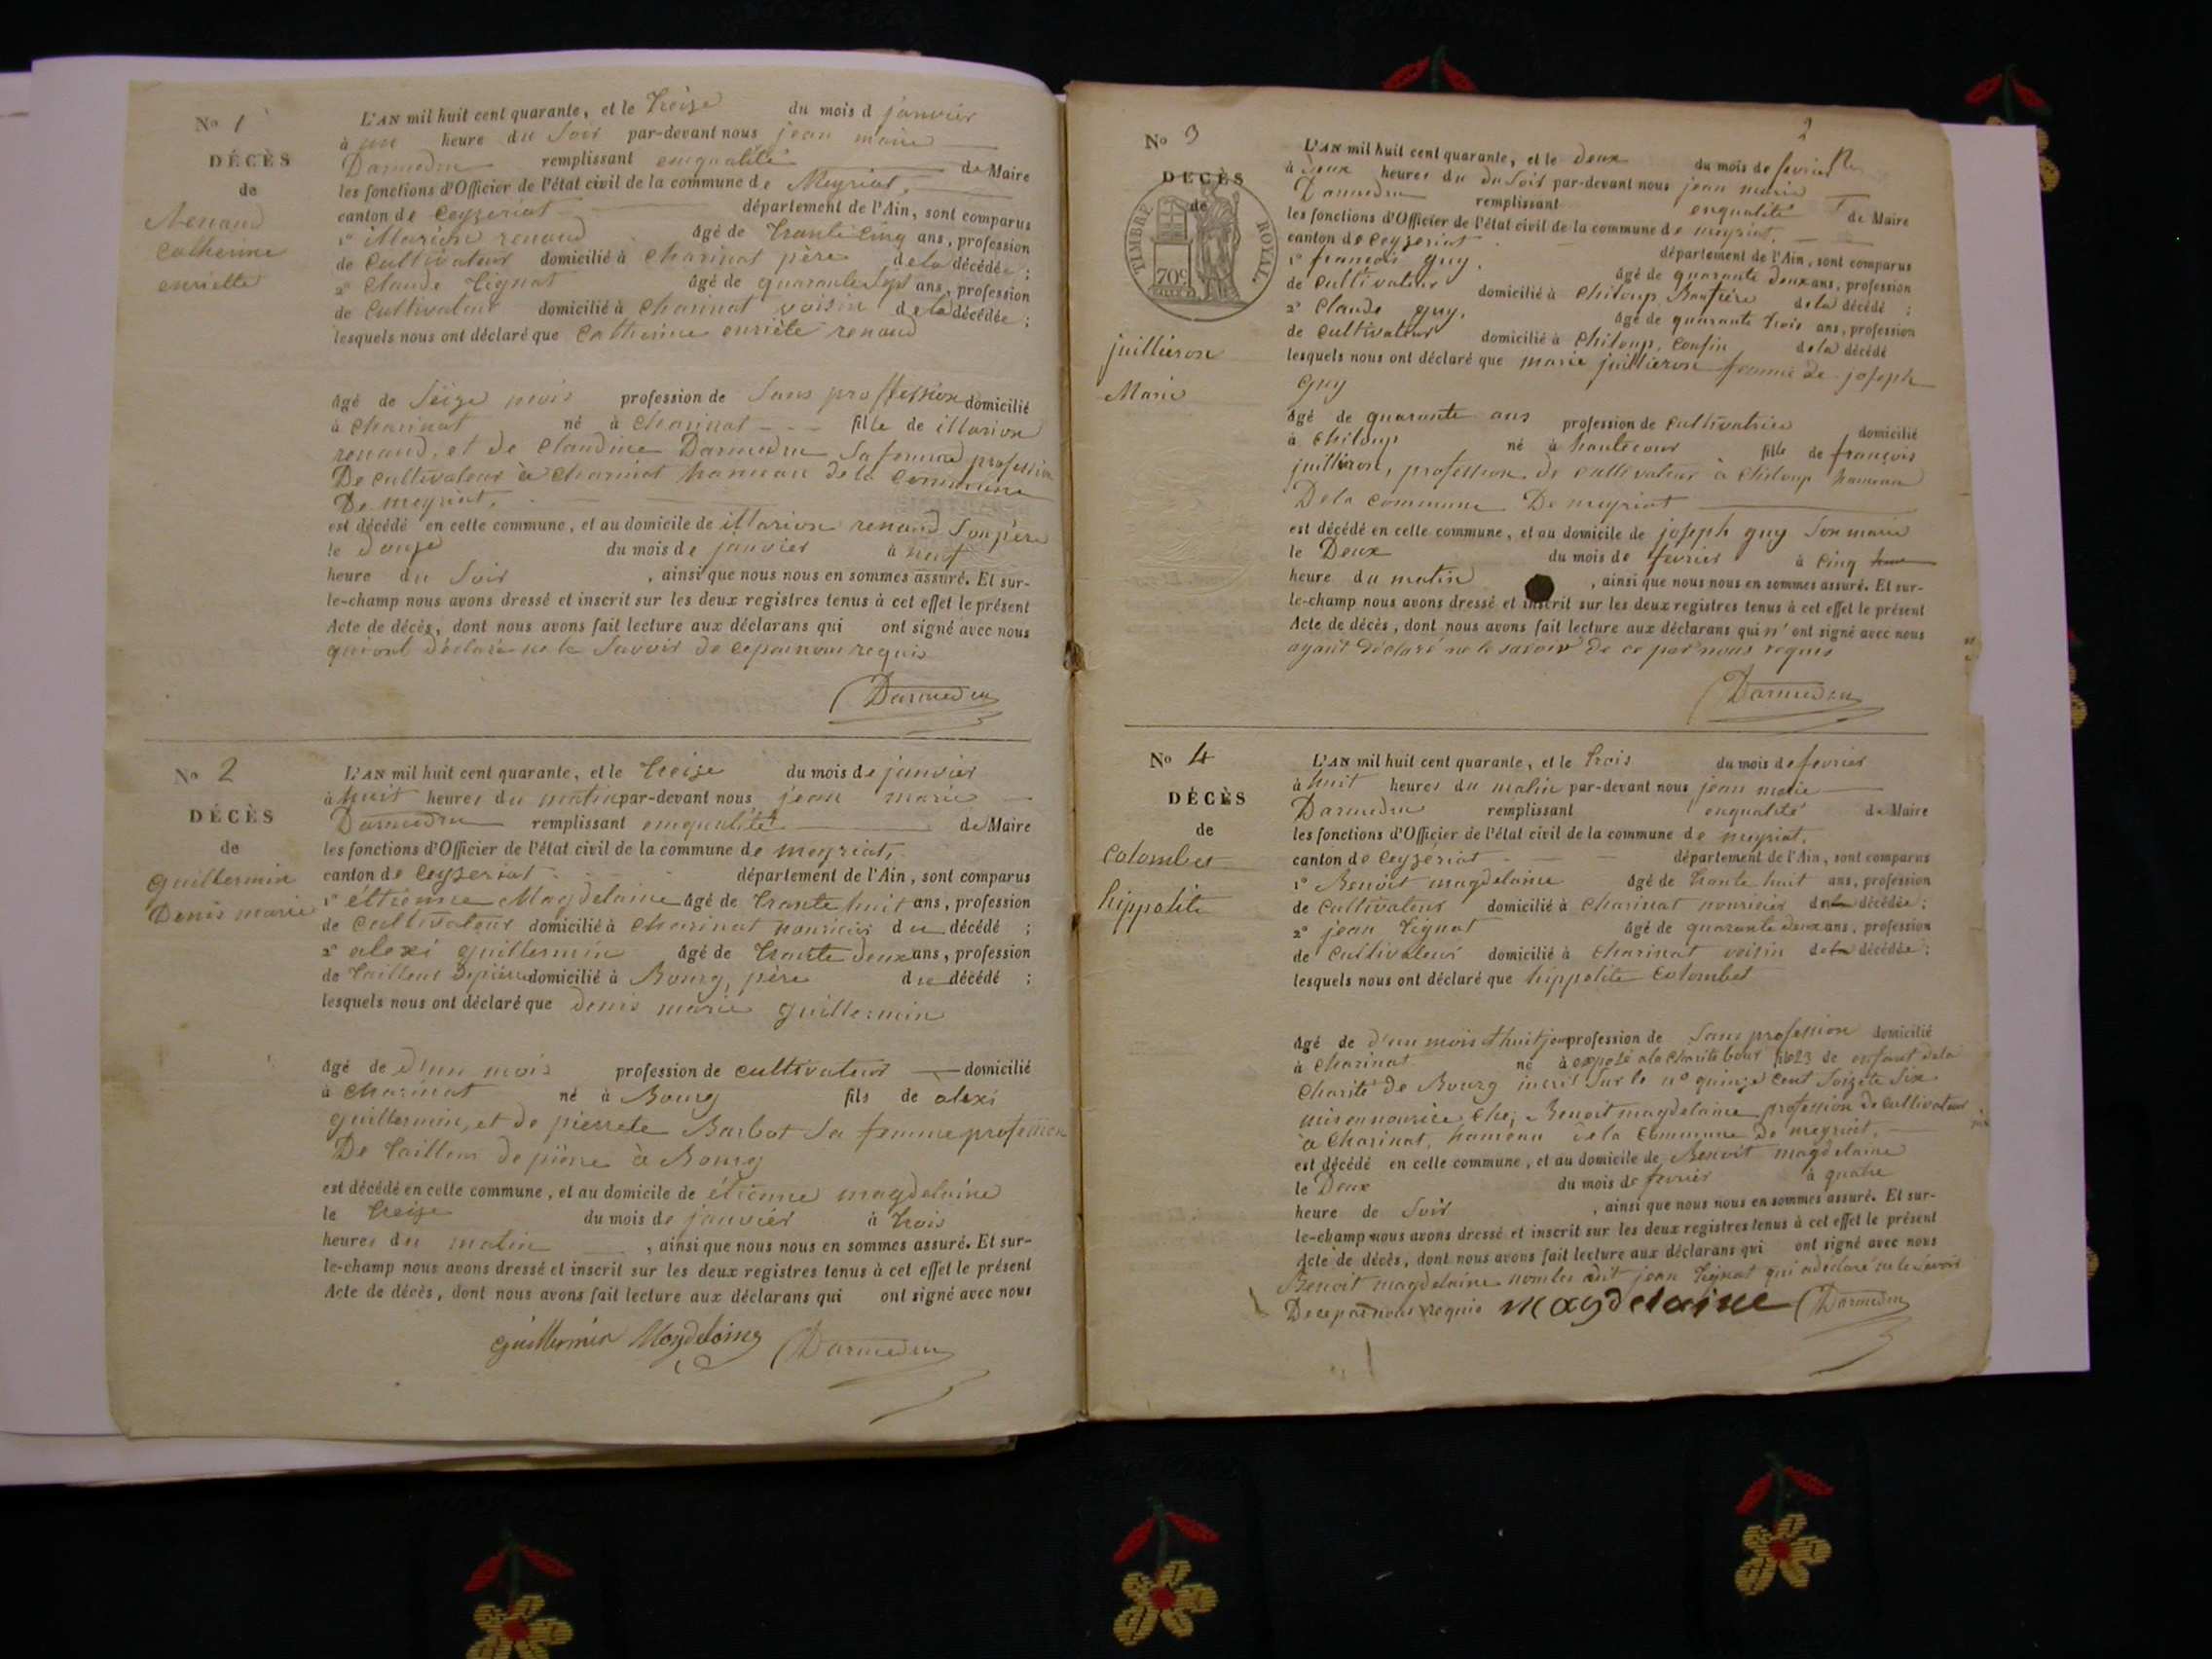 No 1
DÉCÈS
de
Renaud
Catherine
enriette
L'AN mil huit cent quarante, et le treize du mois d janvier
à un heure du Soir par-devant nous jean marie
Darmedru remplissant enqualité de Maire
les fonctions d'Officier de l'état civil de la commune de Meyriat,
canton de Ceyzeriat département de l'Ain, sont comparus
1° illarion renaud âgé de trante cinq ans, profession
de Cultivateur domicilié à Charinat père de la décédée ;
2° Claude tignat âgé de quarante Sept ans, profession
de Cultivateur domicilié à Charinat voisin de la décédée ;
lesquels nous ont déclaré que Catherine enriète renaud
âgé de Seize mois profession de Sans proffession domicilié
à Charinat né à Charinat fille de illarion
renaud, et de Claudine Darmedru Sa femme profession
De Cultivateur à Charinat hameau de la Commune
De meyriat.
est décédé en celle commune, et au domicile de illarion renaud Son père
le Douze du mois de janvier à neuf
heure du Soir , ainsi que nous nous en sommes assuré. Et sur-
le-champ nous avons dressé et inscrit sur les deux registres tenus à cet effet le présent
Acte de décès, dont nous avons fait lecture aux déclarans qui ont signé avec nous
qui ont déclaré ne le Savoir de ce par nous requis
Darmedru
No 2
DÉCÈS
de
guillermin
Denis marie
L'AN mil huit cent quarante, et le treize du mois de janvier
à huit heures du matin par-devant nous jean marie
Darmedru remplissant enqualité de Maire
les fonctions d'Officier de l'état civil de la commune de meyriat,
canton de Ceyzeriat département de l'Ain, sont comparus
1° étienne Magdelaine âgé de trante huit ans, profession
de Cultivateur domicilié à Charinat nouricier du décédé ;
2° alexi guillermin âgé de trante deux ans, profession
de tailleur de pierre domicilié à Bourg, père du décédé ;
lesquels nous ont déclaré que denis marie guillermin
âgé de d'un mois profession de cultivateur domicilié
à Charinat né à Bourg fils de alexi
guillermin, et de pierrete Barbot Sa femme profession
De tailleur de pierre à Bourg
est décédé en celle commune, et au domicile de étienne magdelaine
le treize du mois de janvier à trois
heures du matin , ainsi que nous nous en sommes assuré. Et sur-
le-champ nous avons dressé et inscrit sur les deux registres tenus à cet effet le présent
Acte de décès, dont nous avons fait lecture aux déclarans qui ont signé avec nous
guillermin Magdelaine Darmedru
2
No 3
DÉCÈS
de
TIMBRE ROYAL.
70c
juillieron
Marie
L'AN mil huit cent quarante, et le deux du mois de fevrier
à deux heures du du Soir par-devant nous jean marie
Darmedru remplissant enqualité de Maire
les fonctions d'Officier de l'état civil de la commune de meyriat,
canton de Ceyzeriat département de l'Ain, sont comparus
1° françois guy, âgé de quarante deux ans, profession
de cultivateur domicilié à Chiloup Beaufrére de la décédé ;
2° Claude guy, âgé de quarante trois ans, profession
de cultivateur domicilié à Chiloup, Coufin de la décédé
lesquels nous ont déclaré que marie juillieron femme de joseph
guy
âgé de quarante ans profession de cultivatrice domicilié
à Chiloup né à hautecour fille de françois
juilliron, profession de cultivateur à Chiloup hameau
De la commune De meyriat
est décédé en celle commune, et au domicile de joseph guy Son marie
le Deux du mois de fevrier à cinq
heure du matin , ainsi que nous nous en sommes assuré. Et sur-
le-champ nous avons dressé et inscrit sur les deux registres tenus à cet effet le présent
Acte de décès, dont nous avons fait lecture aux déclarans qui n'ont signé avec nous
ayant déclaré ne le savoir de ce par nous requis
Darmedru
No 4
DÉCÈS
de
Colombet
hippolite
L'AN mil huit cent quarante, et le trois du mois de fevrier
à huit heures du matin par-devant nous jean marie
Darmedru remplissant enqualité de Maire
les fonctions d'Officier de l'état civil de la commune de meyriat,
canton de Ceyzériat département de l'Ain, sont comparus
1° Benoit magdelaine âgé de trante huit ans, profession
de cultivateur domicilié à Charinat nouricier de la décédée ;
2° jean tignat âgé de quarante deux ans, profession
de cultivateur domicilié à Charinat voisin de la décédée ;
lesquels nous ont déclaré que hippolite Colombet
âgé de d'un mois et huit jour profession de Sans profession domicilié
à Charinat né à exposé a la Charité de enfant de la
Charité de Bourg inscrit Sur le n° quinze Cent Soizete Six
mis en nourice chez Benoit magdelaine profession de cultivateur
à Charinat, hameau de la commune de meyriat.
est décédé en celle commune, et au domicile de Benoit magdelaine
le Deux du mois de fevrier à quatre
heure de Soir , ainsi que nous nous en sommes assuré. Et sur-
le-champ nous avons dressé et inscrit sur les deux registres tenus à cet effet le présent
Acte de décès, dont nous avons fait lecture aux déclarans qui ont signé avec nous
Benoit magdelaine non le dit jean tignat qui a déclaré ne le Savoir
De ce par nous requis magdelaine Darmedru